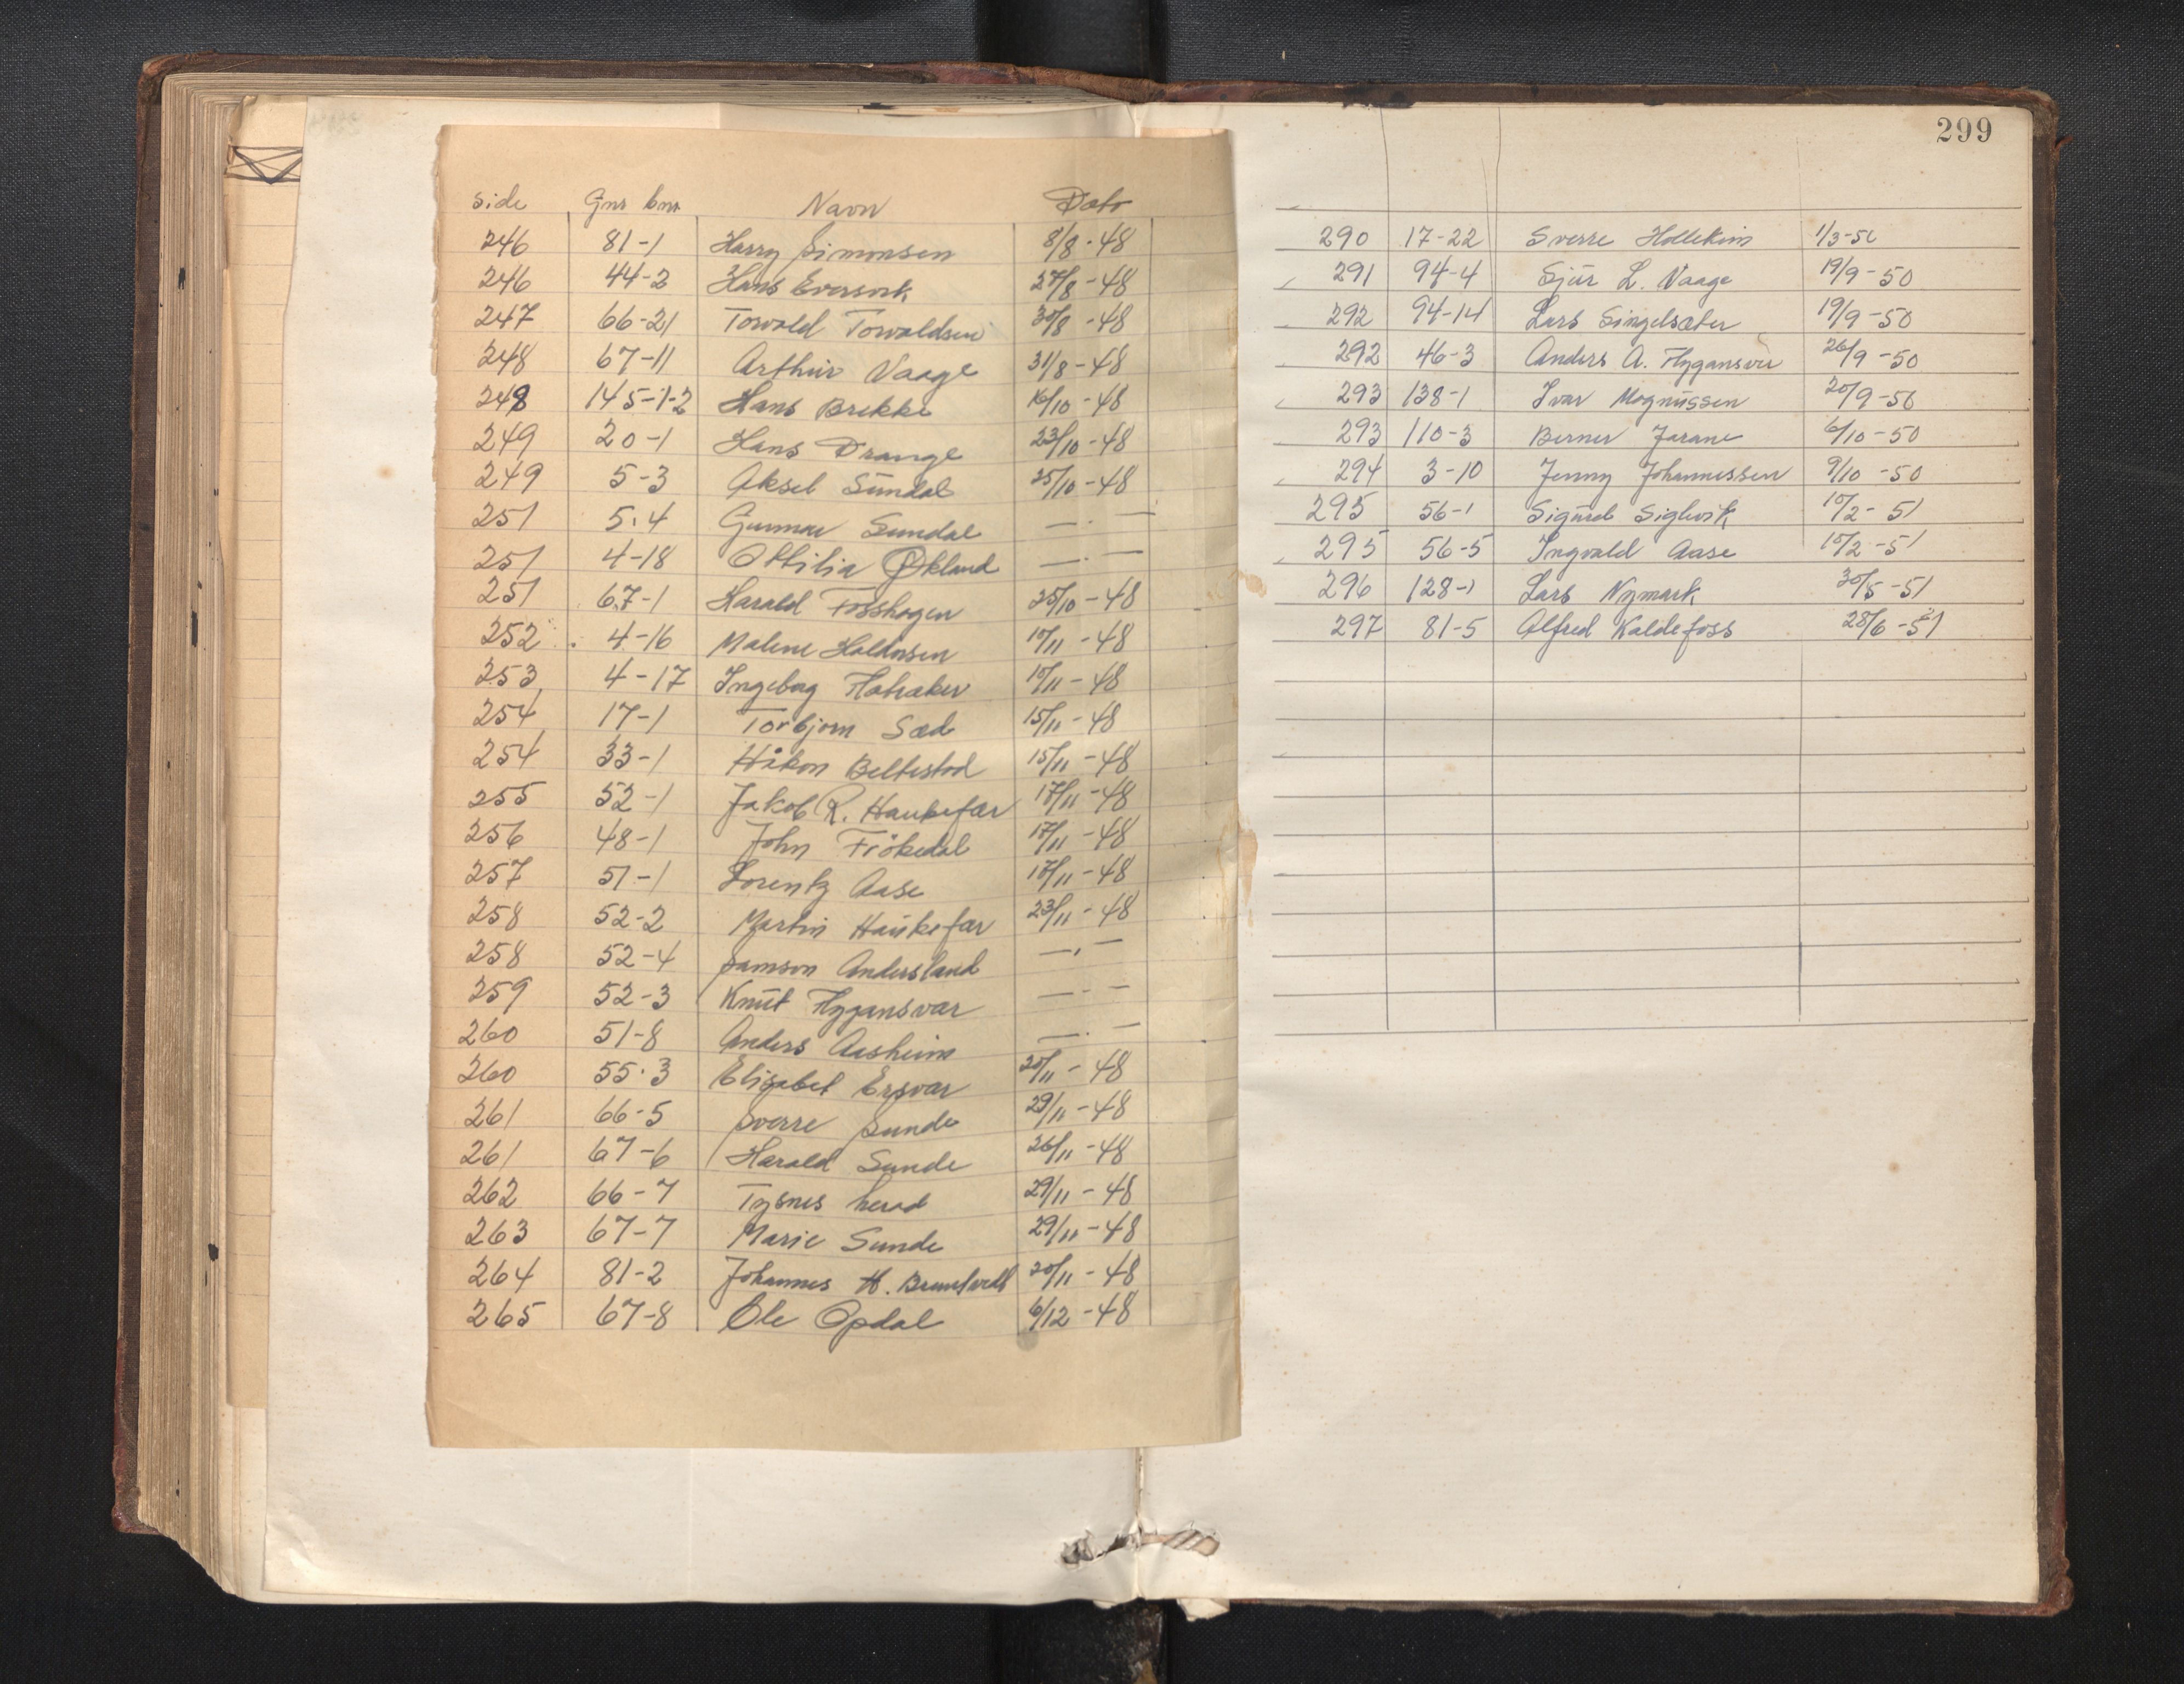 side Gnr bnr Navn Dato
246 81-1 Harry Simonsen 8/8-48
246 44-2 Hans Eversvik 27/8-48
247 66-21 Torvald Torvaldsen 30/8-48
248 67-11 Arthur Vaage 31/8-48
248 145-1-2 Hans Brekke 16/10-48
249 20-1 Hans Drange 23/10-48
249 5-3 Aksel Sundal 25/10-48
251 5.4 Gunnar Sundal —.—
251 4-18 Ottilia Økland —.—
251 67-1 Harald Fosshagen 25/10-48
252 4-16 Malene Haldorsen 10/11-48
253 4-17 Ingeborg Flatråker 10/11-48
254 17-1 Torbjørn Sæd 15/11-48
254 33-1 Håkon Beltestad 15/11-48
255 52-1 Jakob R. Haukefær 17/11-48
256 48-1 John Frökedal 17/11-48
257 51-1 Lorentz Aase 17/11-48
258 52-2 Martin Haukefær 23/11-48
258 52-4 Samson Andersland —.—
259 52-3 Knut Flygansvær —.—
260 51-8 Anders Aasheim —.—
260 55.3 Elisabet Ersvær /11-48
261 66-5 Sverre Sunde 29/11-48
261 67-6 Harald Sunde 26/11-48
262 66-7 Tysnes herad 29/11-48
263 67-7 Marie Sunde 29/11-48
264 81-2 Johannes H. /11-48
265 67-8 Ole Opdal 6/12-48
299
290 17-22 Sverre Hollekim 1/3-50
291 94-4 Sjur L. Vaage 19/9-50
292 94-14 Lars Singelsæter 19/9-50
292 46-3 Anders A. Flygansvær 26/9-50
293 138-1 Ivar Magnussen 20/9-50
293 110-3 Berner Jarane 6/10-50
294 3-10 Jenny Johannessen 9/10-50
295 56-1 Sigurd Siglevik 10/2-51
295 56-5 Ingvald Aase 10/2-51
296 128-1 Lars Nymark 30/5-51
297 81-5 Alfred Kaldefoss 28/6-51